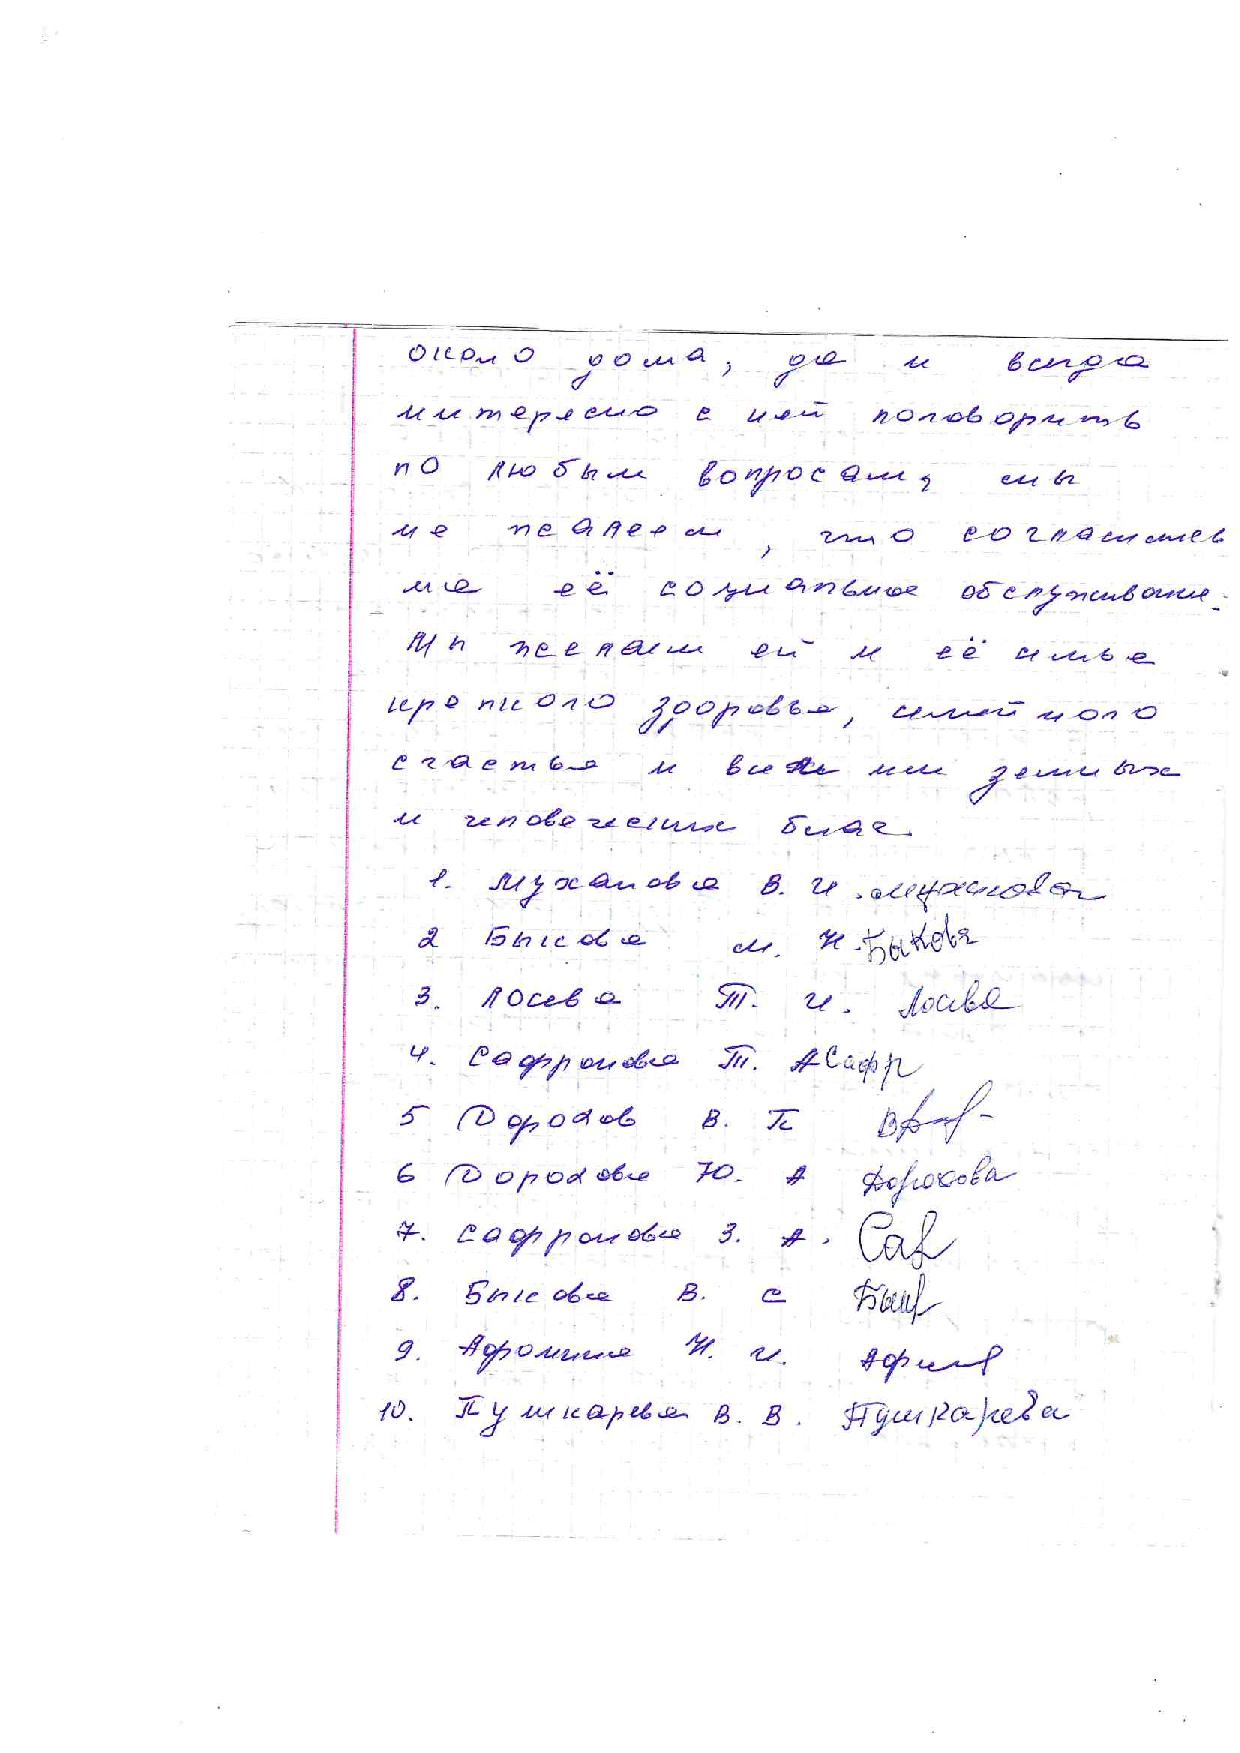 около дома, да и всегда
интересно с ней поговорить
по любым вопросам, мы
не жалеем, что согласились
на её социальное обслуживание.
Мы желаем ей и её семье
крепкого здоровья, семейного
счастья и всяких земных
и человеческих благ.
1. Муханова В. И. Муханова
2 Быкова М. Н. Быкова
3. Лосева Т. И. Лосева
4. Сафронова Т. А Сафр
5 Дорохов В. П
6 Дорохова Ю. А Дорохова
7. Сафронова З. А. Саф
8. Быкова В. С Бык
9. Афонина Н. И.
10. Пушкарева В. В. Пушкарева